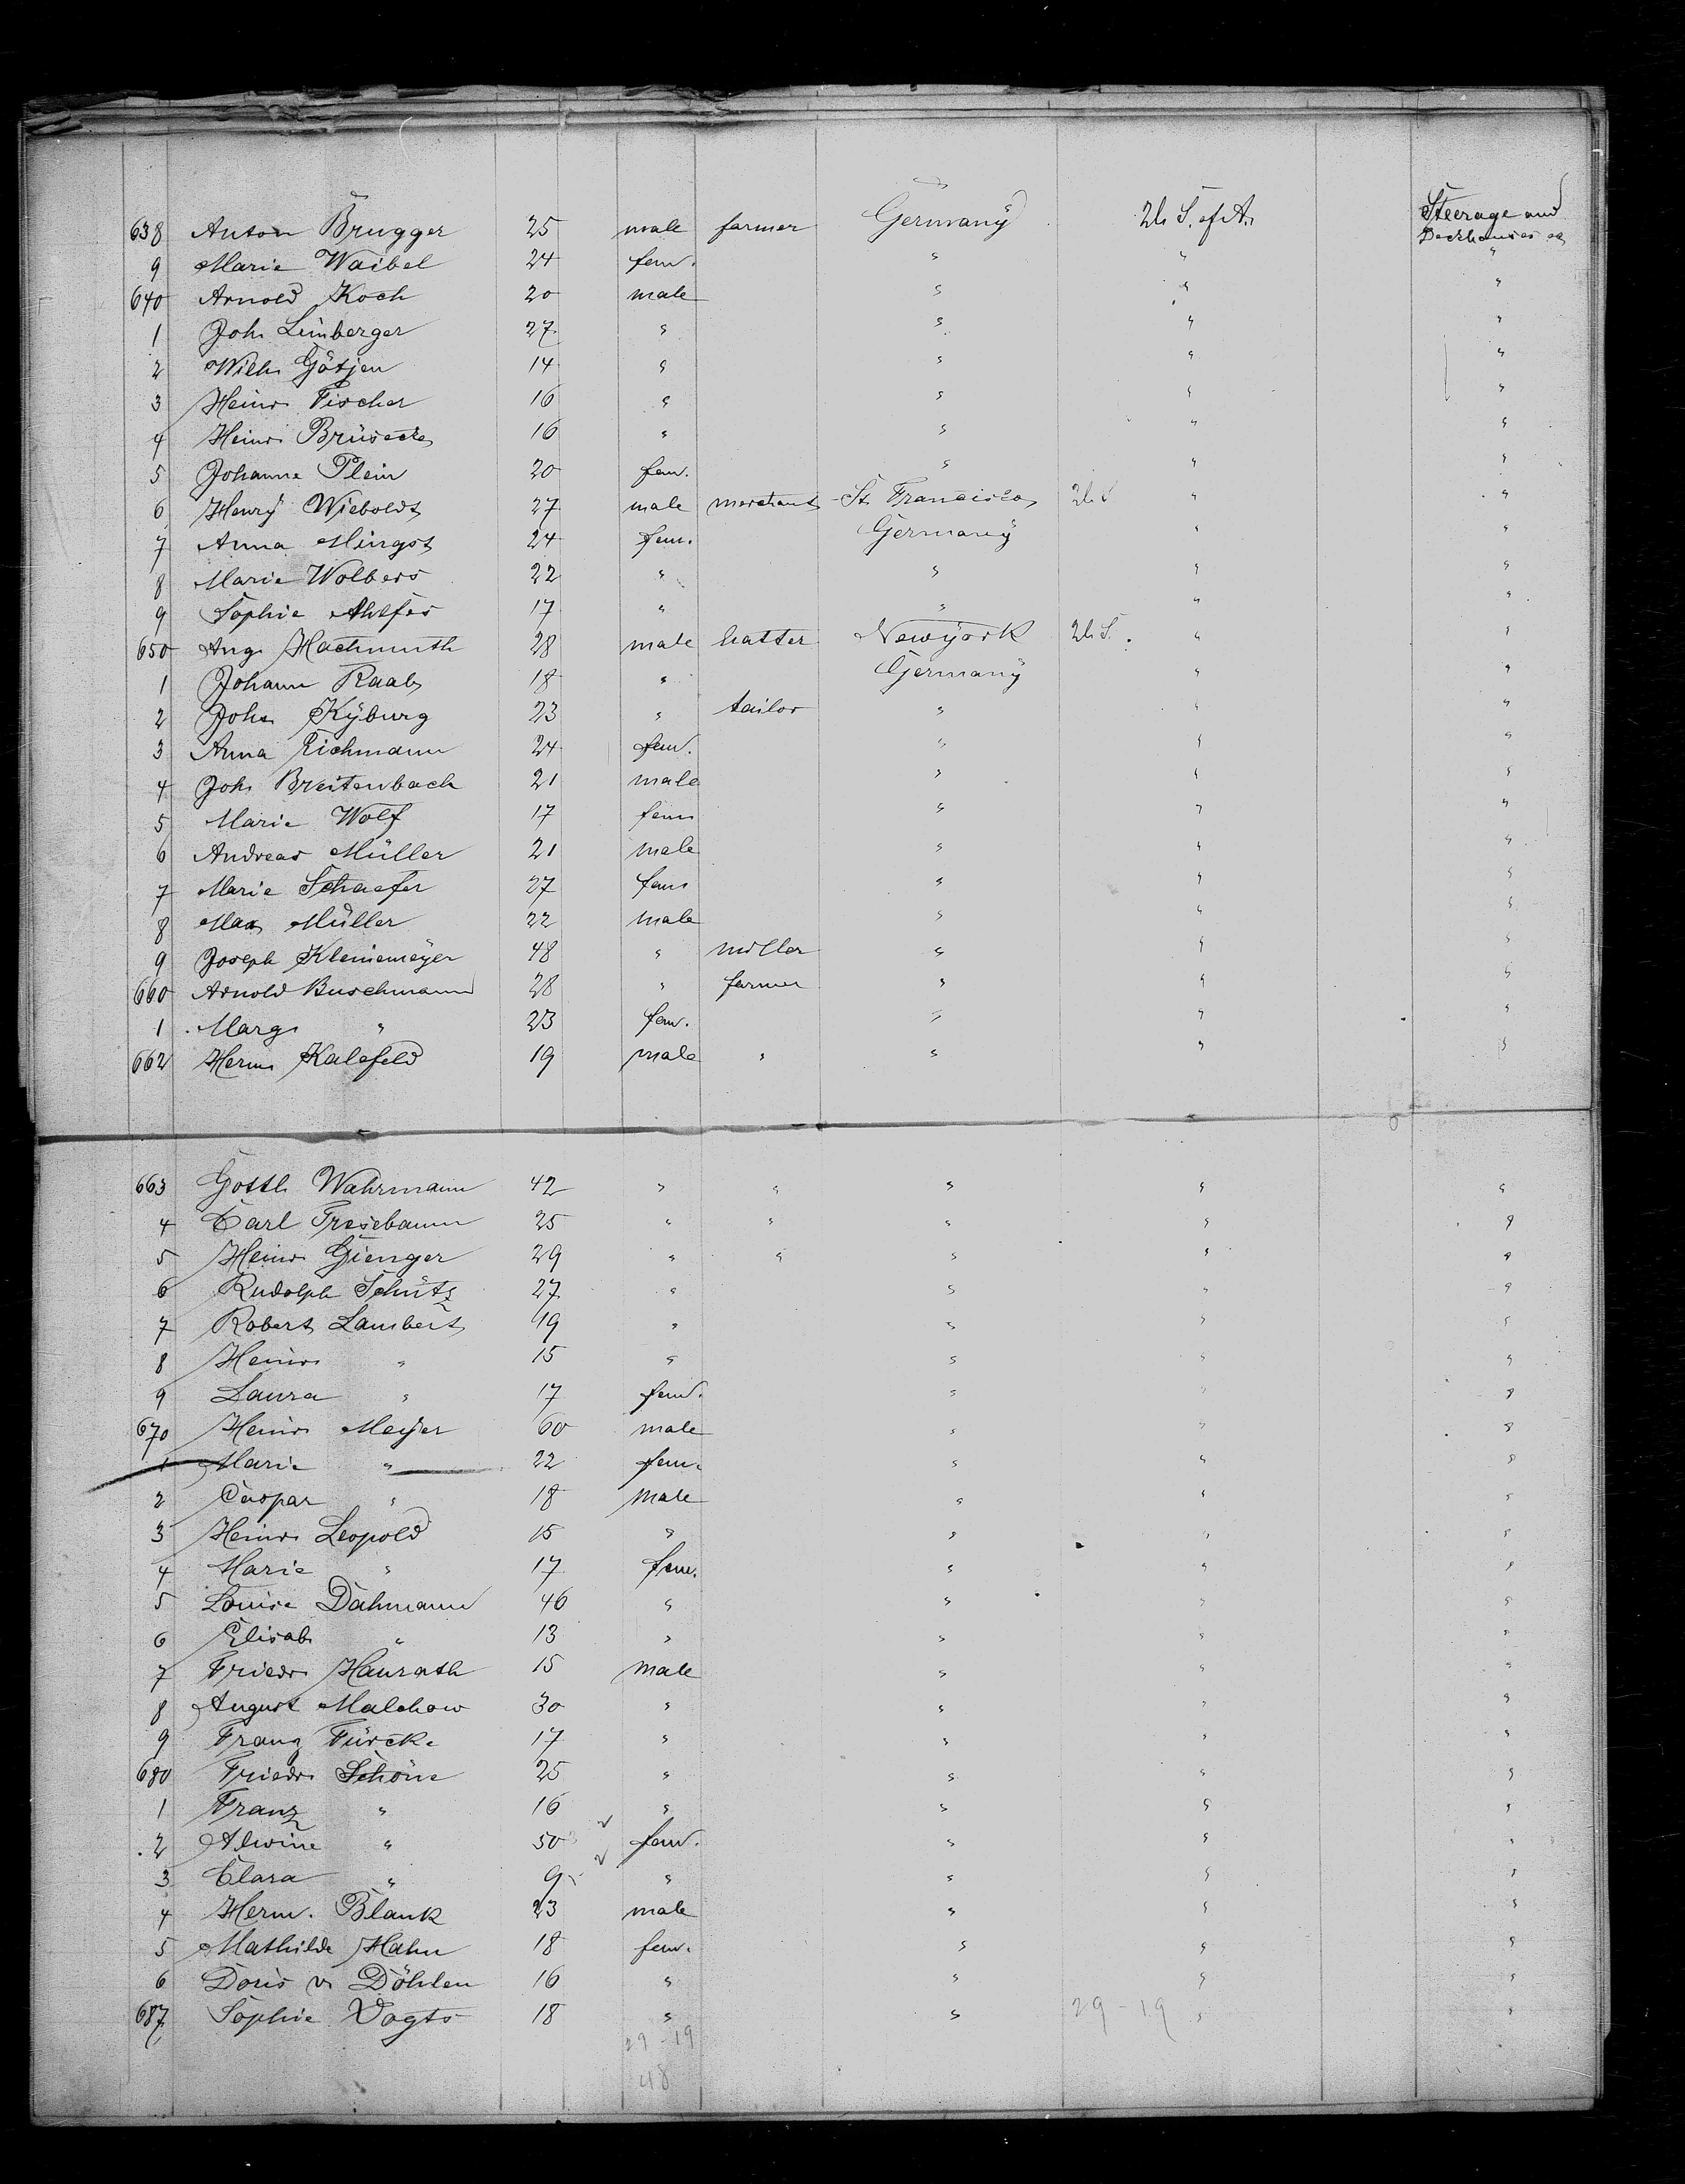 638 Anton Brugger 25 male farmer Germany U. S. of A. Steerage and
Deckhouses
9 Marie Waibel 24 fem. " " "
640 Arnold Koch 20 male " " "
1 Joh. Limberger 27 " " " "
2 Wilh. Götjen 14 " " " "
3 Heinr. Fischer 16 " " " "
4 Heinr. Brüsecke 16 " " " "
5 Johanne Plein 20 fem. " " "
6 Henry Wieboldt 27 male merchant St. Francisco U. S. " "
7 Anna Mingst 24 fem. Germany " "
8 Marie Wolbers 22 " " " "
9 Sophie Ahlfes 17 " " " "
650 Aug. Hachmuth 28 male hatter Newyork U. S. " "
1 Johann Raab 18 " Germany " "
2 Joh. Kyburg 23 " tailor " " "
3 Anna Eichmann 24 fem. " " "
4 Joh. Breitenbach 21 male " " "
5 Marie Wolf 17 fem. " " "
6 Andreas Müller 21 male " " "
7 Marie Schaefer 27 fem. " " "
8 Max Müller 22 male " " "
9 Joseph Kleinemeyer 48 " miller " " "
660 Arnold Buschmann 28 " farmer " " "
1 Marg. " 23 fem. " " "
662 Herm. Kalefeld 19 male " " " "
663 Gottl. Wahrmann 42 " " " " "
4 Carl Fresebaum 25 " " " " "
5 Heinr. Gienger 29 " " " " "
6 Rudolph Schütz 27 " " " "
7 Robert Lambert 19 " " " "
8 Heinr. " 15 " " " "
9 Laura " 17 fem. " " "
670 Heinr. Meyer 60 male " " "
1 Marie " 22 fem. " " "
2 Caspar " 18 male " " "
3 Heinr. Leopold 15 " " " "
4 Marie " 17 fem. " " "
5 Louise Dahmann 46 " " " "
6 Elisab. " 13 " " " "
7 Friedr. Haurath 15 male " " "
8 August Malchow 30 " " " "
9 Franz Fürcke 17 " " " "
680 Friedr. Schöne 25 " " " "
1 Franz " 16 " " " "
2 Alwine " 50 fem. " " "
3 Clara " 9 " " " "
4 Herm. Blank 23 male " " "
5 Mathilde Hahn 18 fem. " " "
6 Doris v. Döhlen 16 " " " "
687 Sophie Vogts 18 " " 29-19 " "
29-19
48